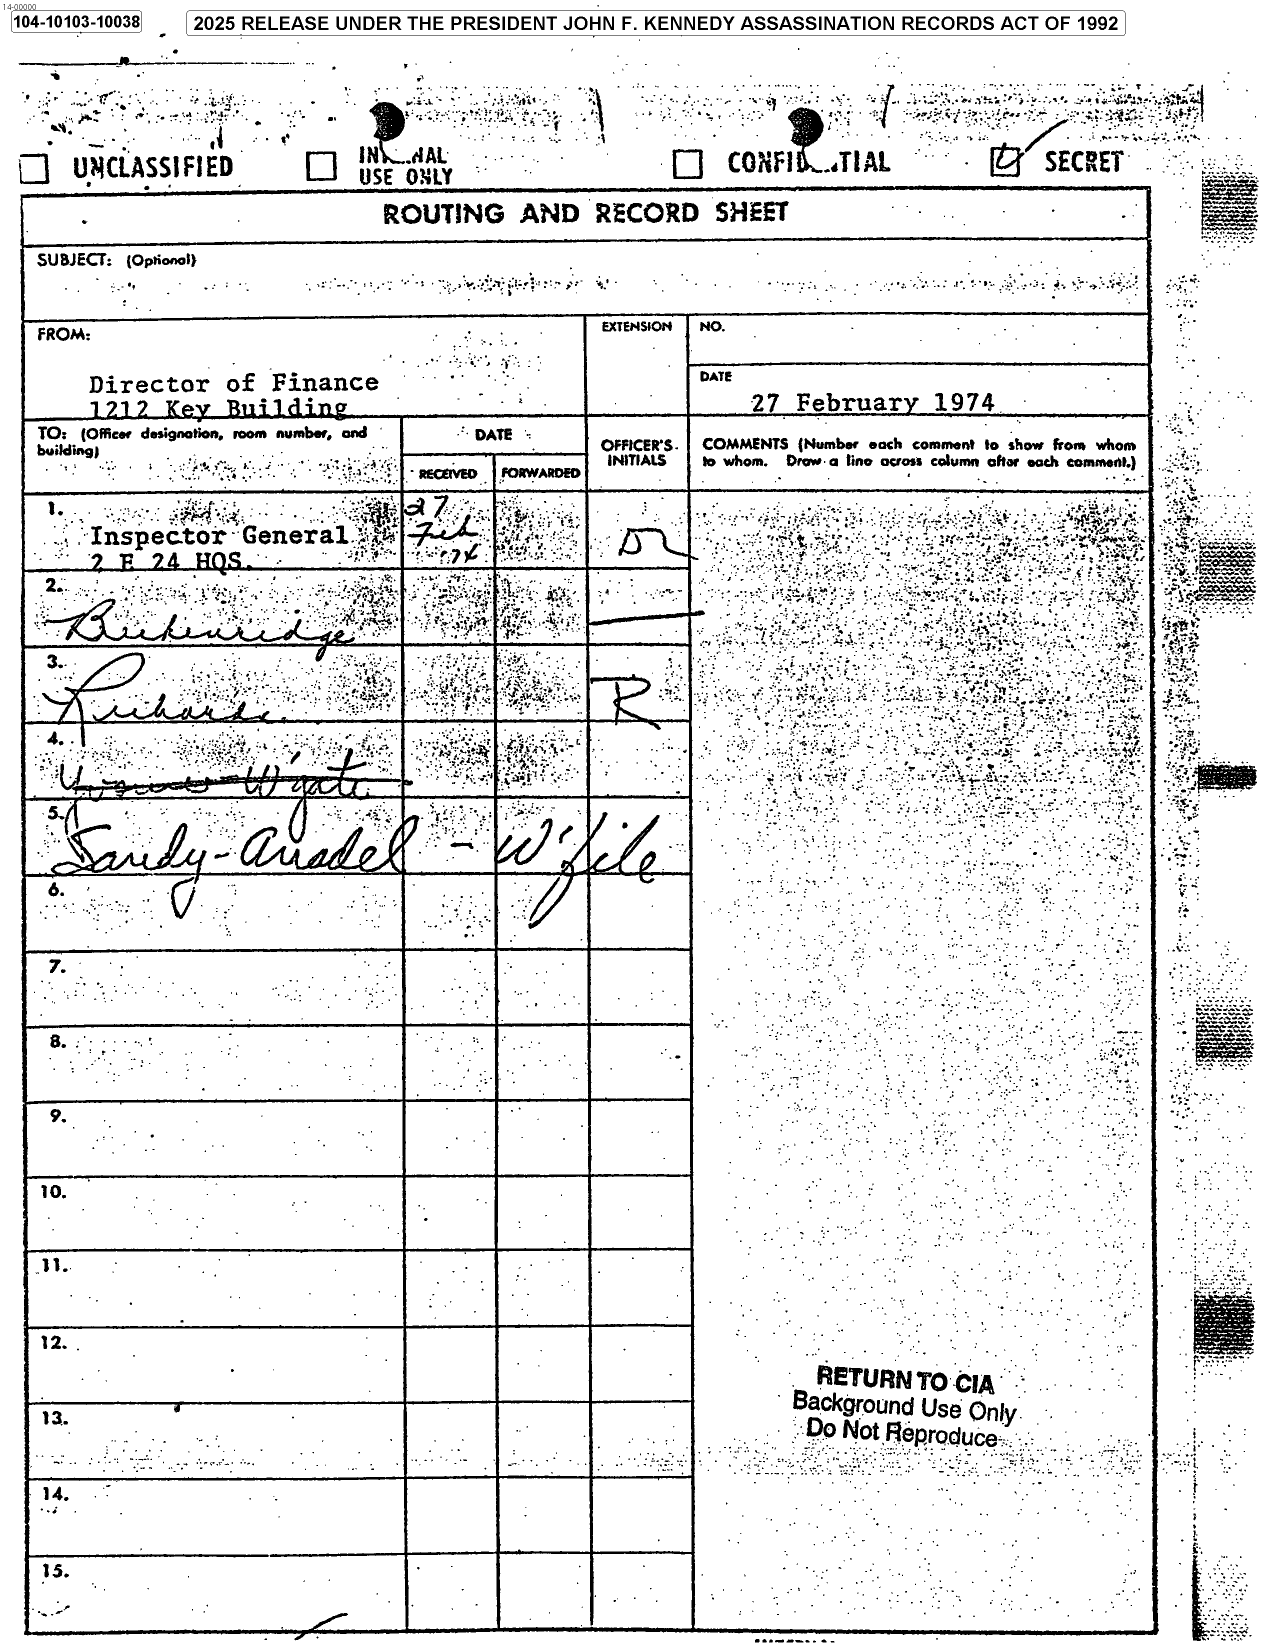 14-00000
104-10103-10038
2025 RELEASE UNDER THE PRESIDENT JOHN F. KENNEDY ASSASSINATION RECORDS ACT OF 1992
UNCLASSIFIED
USE ONLY
SECRET
ROUTING AND RECORD SHEET
SUBJECT: (Optional)
FROM:
EXTENSION
NO.
Director of Finance
1212 Key Building
DATE
27 February 1974
TO: (Officer designation, room number, and
building)
DATE
RECEIVED
FORWARDED
OFFICER'S
INITIALS
COMMENTS (Number each comment to show from whom
to whom. Draw a line across column after each comment.)
1.
Inspector General
2 E 24 HQS.
27
Feb
'74
2.
Breckenridge
3.
Richards
R
4.
W'gate
5.
Sandy - - W' file
6.
7.
8.
9.
10.
11.
12.
13.
14.
15.
RETURN TO CIA
Background Use Only
Do Not Reproduce